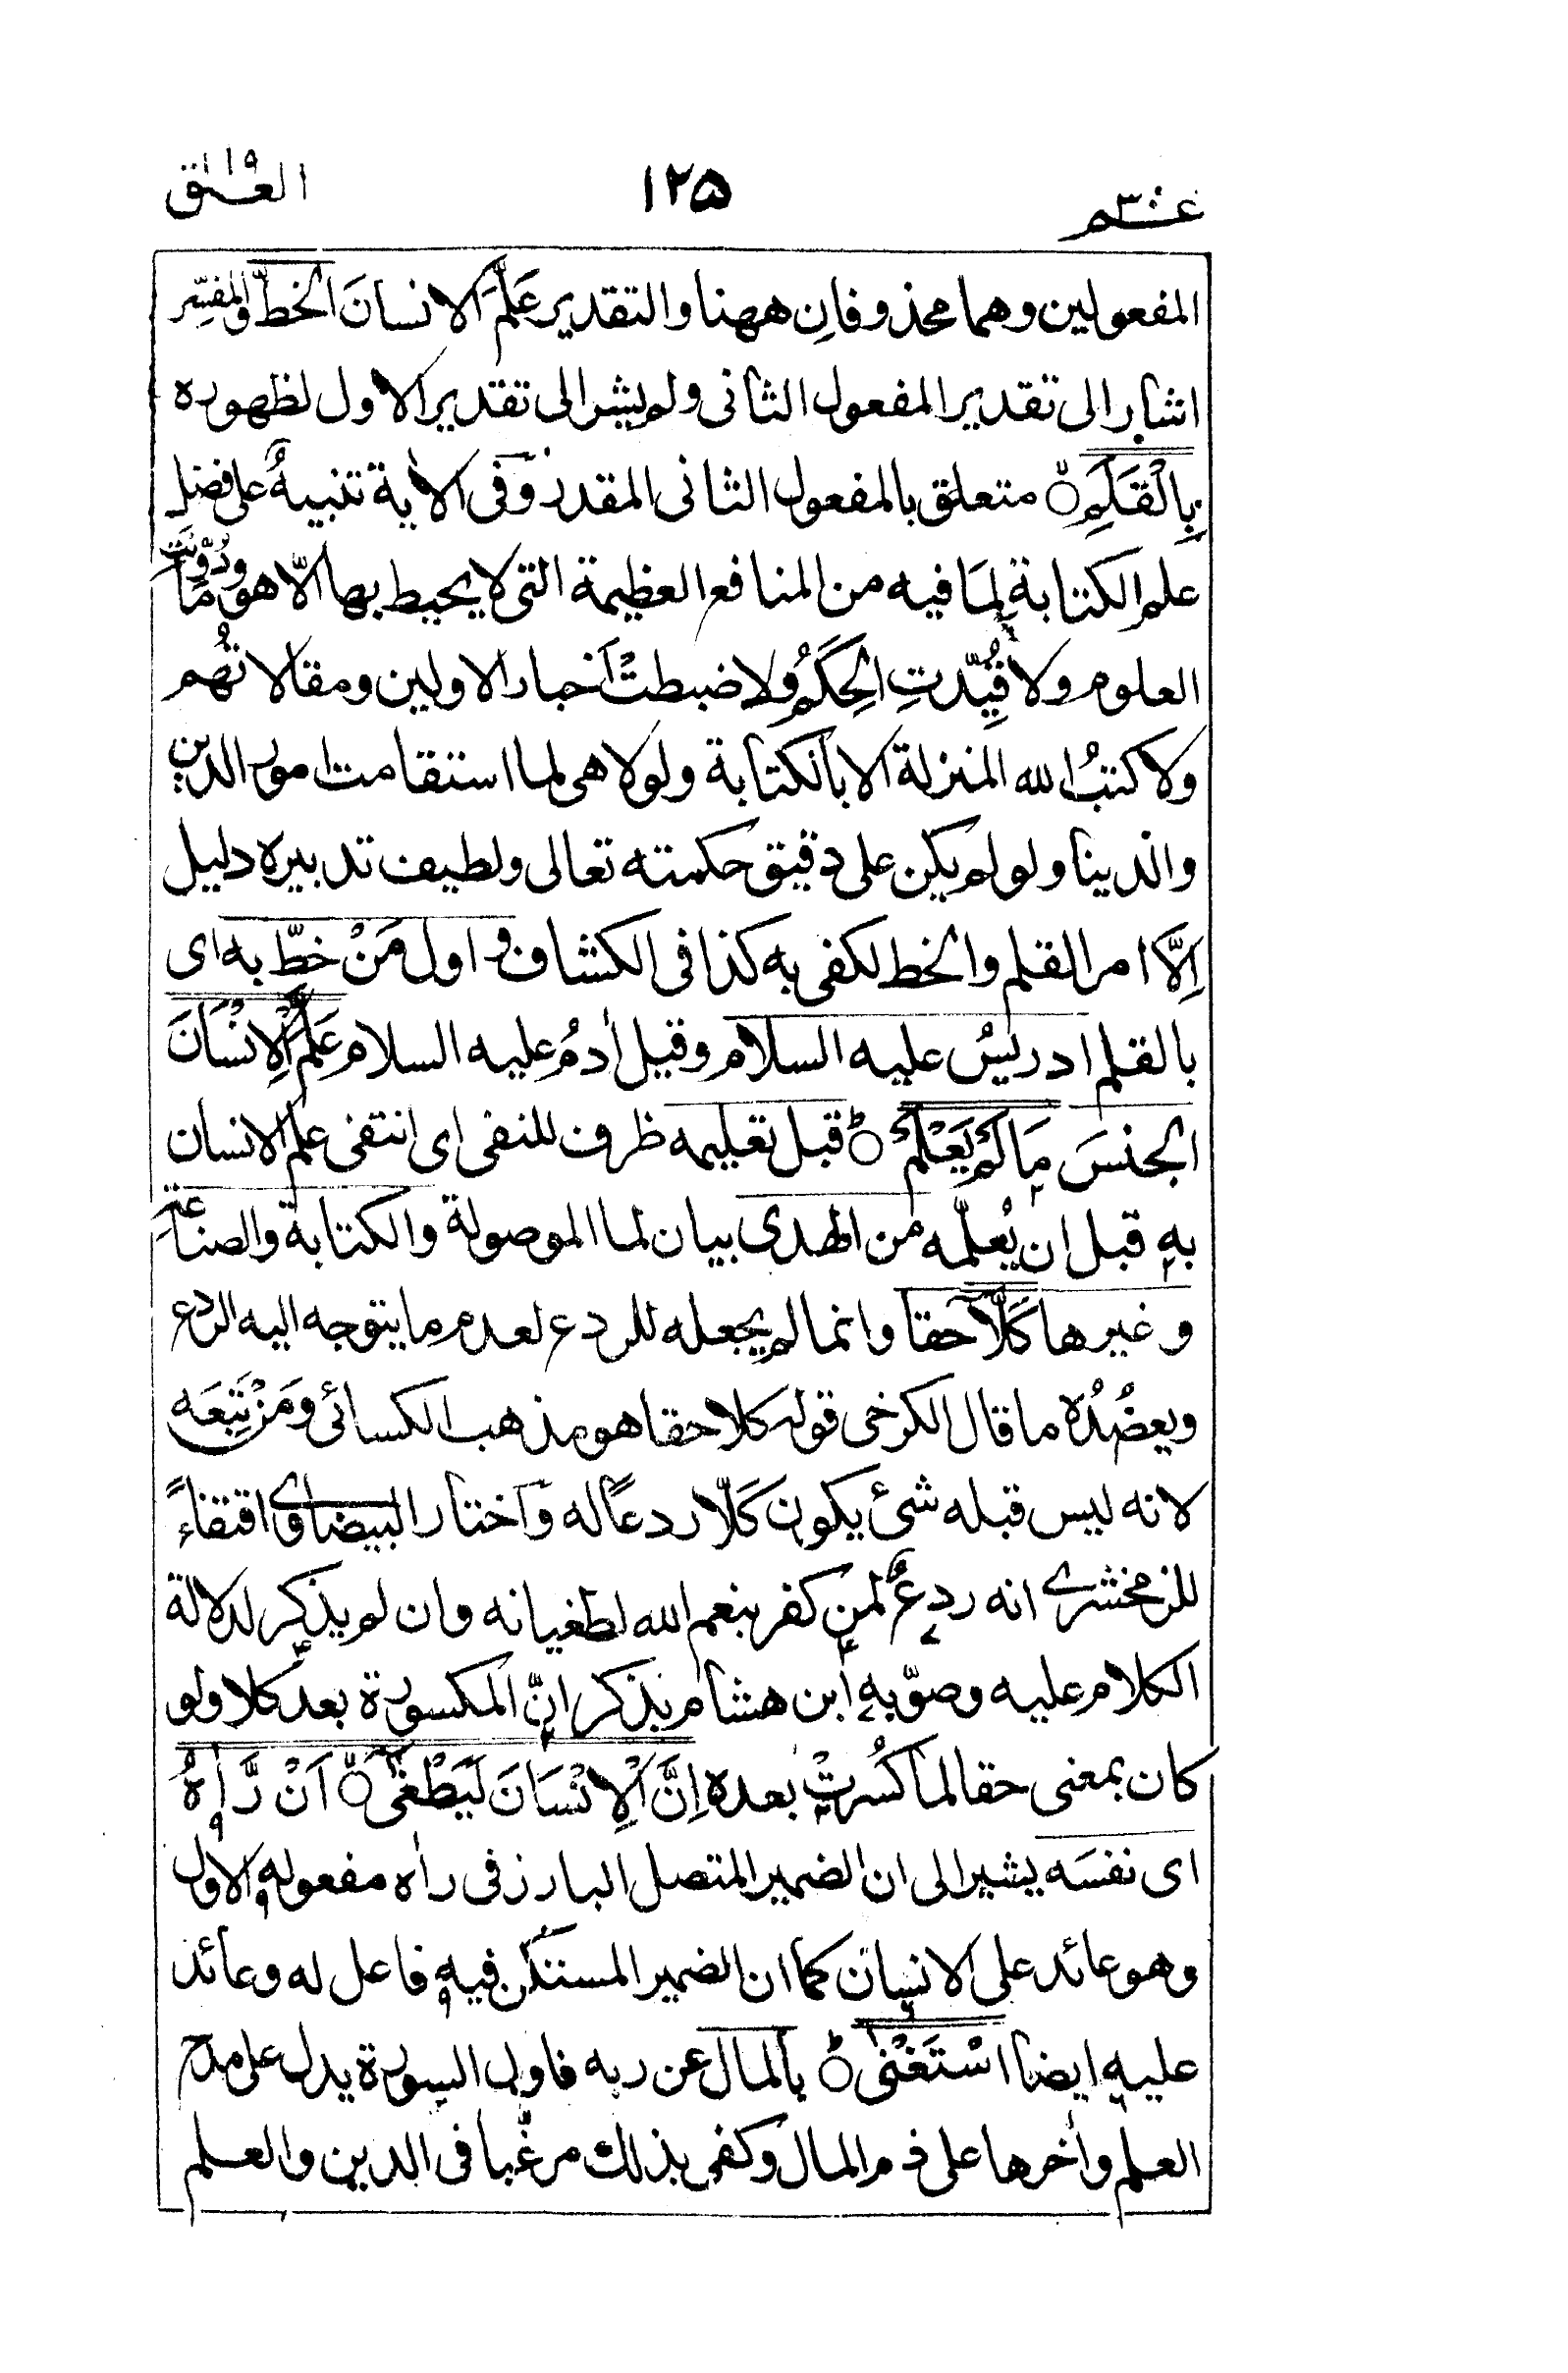 عم ٣٠
١٢٥
العلق ٩٦
المفعولين وهما محذوفان ههنا والتقدير عَلَّمَ الانسانَ الخطَّ والمفسِّر
اشار الى تقدير المفعول الثانى ولم يشر الى تقدير الاول لظهوره
بِالْقَلَمِ متعلق بالمفعول الثانى المقدر وفى الاٰية تنبيهٌ على فضل
علم الكتابة لِمَا فيه من المنافع العظيمة التى لا يحيط بها الّا هو وما دُوِّنَتْ
العلوم ولا قُيِّدتِ الحِكَمُ ولا ضبطتْ اَخبار الاولين ومقالاتُهم
ولا كتبُ الله المنزلة الا بالكتابة ولولا هى لما استقامت امور الدين
والدينا ولو لم يكن على دقيق حكمته تعالى ولطيف تدبيره دليل
اِلَّا امر القلم والخط لكفى به كذا فى الكشاف و اول مَنْ خطّ به اى
بالقلم ادريسُ عليه السلام وقيل اٰدمُ عليه السلام عَلَّمَ الْاِنْسَانَ
الجنسَ مَا لَمْ يَعْلَمْ قبل تعليمه ظرف للنفى اى انتفى علم الانسان
به قبل ان يُعلّمه من الهدى بيان لما الموصولة والكتابة والصناعة
وغيرها كَلَّا حقا وانما لم يجعله للردع لعدم ما يتوجه اليه الردع
ويعضُدُه ما قال الكرخى قوله كلا حقا هو مذهب الكسائى ومَنْ تَبِعَه
لانه ليس قبله شئ يكون كَلَّا ردعًا له وَاختار البيضاوى اقتفاءً
للزمخشرى انه ردعٌ لمن كفر بنعم الله لطغيانه وان لم يذكر لدلالة
الكلام عليه وصوّبه ابن هشام بذكر انّ المكسورة بعد كلا ولو
كان بمعنى حقا لما كُسرتْ بعده اِنَّ الْاِنْسَانَ لَيَطْغٰى اَنْ رَّاٰهُ
اى نفسَه يشير الى ان الضمير المتصل البارز فى راٰه مفعوله الاول
وهو عائد على الانسان كما ان الضمير المستكن فيه فاعل له وعائد
عليه ايضا اسْتَغْنٰى بالمال عن ربه فاول السورة يدل على مدح
العلم واٰخرها على ذم المال وكفى بذلك مرغّبا فى الدين والعلم